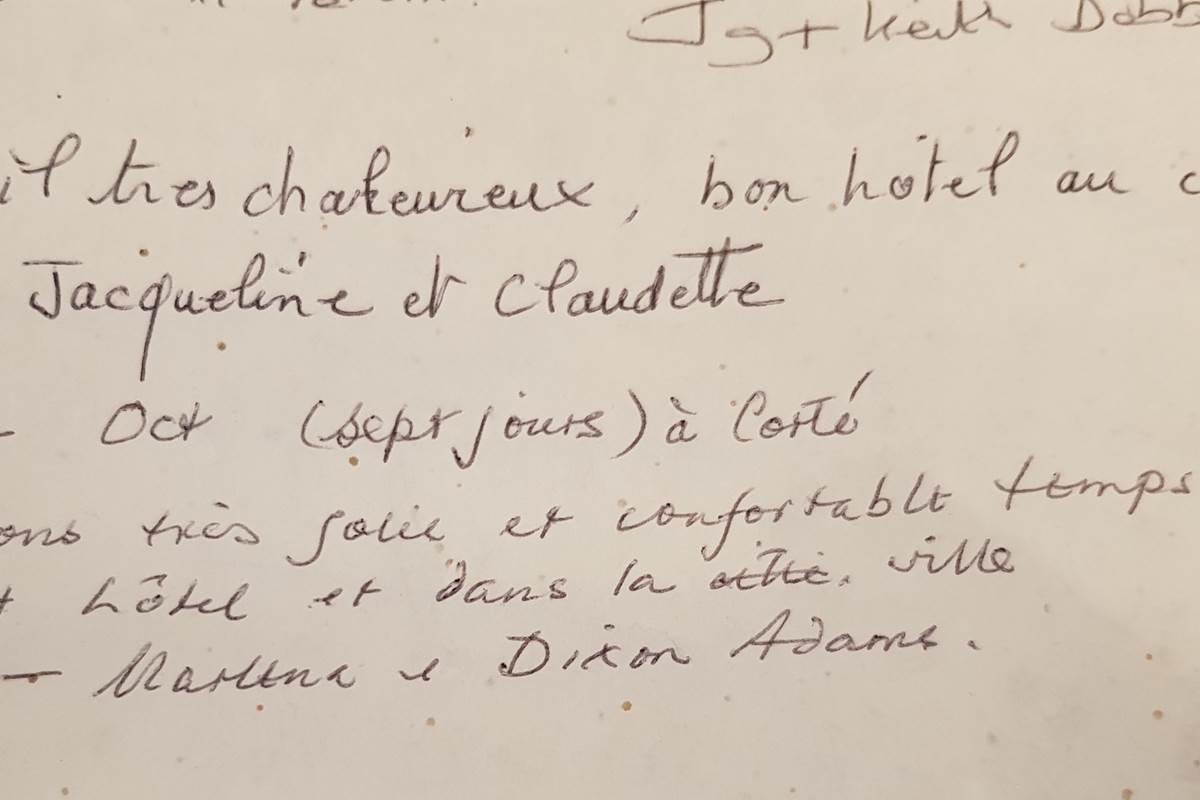 Jg + Keith Dobb
il tres chaleureux, bon hôtel au c
Jacqueline et Claudette
- Oct (sept jours) à Corté
ons très jolie et confortable temps
t hôtel et dans la ville
— Marlena e Dixon Adams.